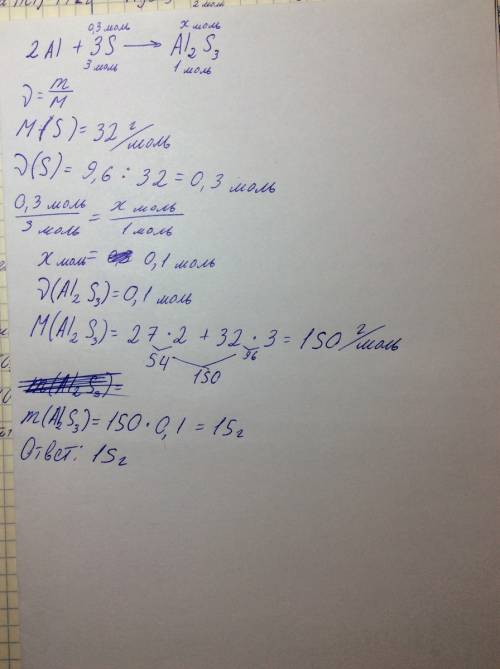 2 моль
0,3 моль x моль
2Al + 3S → Al₂S₃
3 моль 1 моль
ν = m/M
M(S) = 32 г/моль
ν(S) = 9,6 : 32 = 0,3 моль
0,3 моль / 3 моль = x моль / 1 моль
x моль = 0,1 моль
ν(Al₂S₃) = 0,1 моль
M(Al₂S₃) = 27 · 2 + 32 · 3 = 150 г/моль
54 96
150
m(Al₂S₃) =
m(Al₂S₃) = 150 · 0,1 = 15г
Ответ: 15г